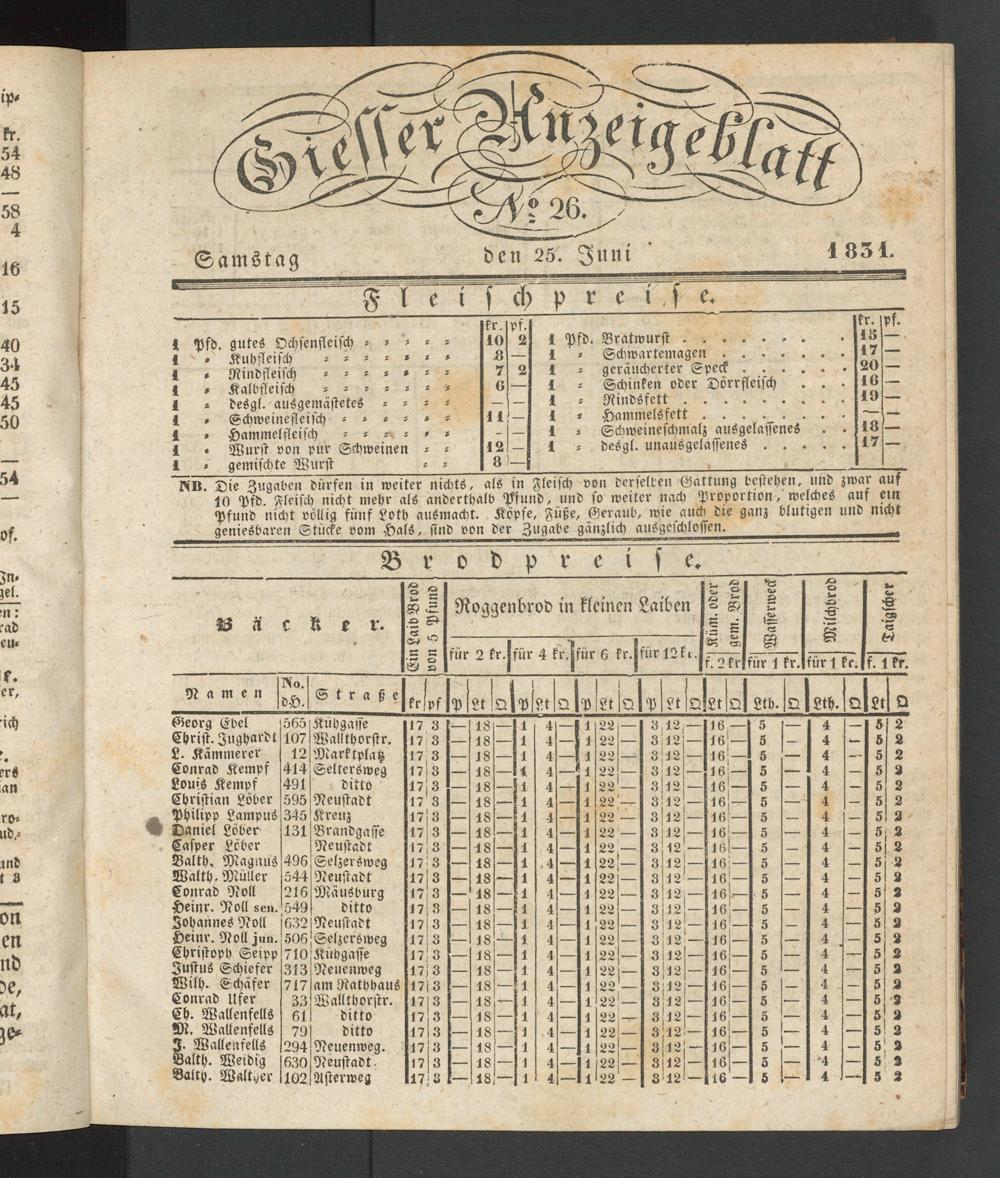 Giesser Anzeigeblatt
No 26.
Samstag den 25. Juni 1831.
Fleischpreise.
kr. pf.
1 Pfd. gutes Ochsenfleisch 10 2
1 = Kuhfleisch 8 —
1 = Rindfleisch 7 2
1 = Kalbfleisch 6 —
1 = desgl. ausgemästetes — —
1 = Schweinefleisch 11 —
1 = Hammelfleisch — —
1 = Wurst von pur Schweinen 12 —
1 = gemischte Wurst 8 —
kr. pf.
1 Pfd. Bratwurst 15 —
1 = Schwartemagen 17 —
1 = geräucherter Speck 20 —
1 = Schinken oder Dörrfleisch 16 —
1 = Rindsfett 19 —
1 = Hammelsfett — —
1 = Schweineschmalz ausgelassenes 18 —
1 = desgl. unausgelassenes 17 —
NB. Die Zugaben dürfen in weiter nichts, als in Fleisch von derselben Gattung bestehen, und zwar auf
10 Pfd. Fleisch nicht mehr als anderthalb Pfund, und so weiter nach Proportion, welches auf ein
Pfund nicht völlig fünf Loth ausmacht. Köpfe, Füße, Geraub, wie auch die ganz blutigen und nicht
geniesbaren Stücke vom Hals, sind von der Zugabe gänzlich ausgeschlossen.
Brodpreise.
Bäcker.
Ein Laib Brod von 5 Pfund
Roggenbrod in kleinen Laiben
für 2 kr. für 4 kr. für 6 kr. für 12 kr.
Küm. oder gem. Brod f. 2 kr
Wasserweck für 1 kr.
Milchbrod für 1 kr.
Taigscher f. 1 kr.
Namen No. d.H. Straße kr pf P Lt Q P Lt Q P Lt Q P Lt Q Lt Q Lth. Q Lth. Q Lt Q
Georg Ebel 565 Kühgasse 17 3 — 18 — 1 4 — 1 22 — 3 12 — 16 — 5 — 4 — 5 2
Christ. Jughardt 107 Wallthorstr. 17 3 — 18 — 1 4 — 1 22 — 3 12 — 16 — 5 — 4 — 5 2
L. Kämmerer 12 Marktplatz 17 3 — 18 — 1 4 — 1 22 — 3 12 — 16 — 5 — 4 — 5 2
Conrad Kempf 414 Seltersweg 17 3 — 18 — 1 4 — 1 22 — 3 12 — 16 — 5 — 4 — 5 2
Louis Kempf 491 ditto 17 3 — 18 — 1 4 — 1 22 — 3 12 — 16 — 5 — 4 — 5 2
Christian Löber 595 Neustadt 17 3 — 18 — 1 4 — 1 22 — 3 12 — 16 — 5 — 4 — 5 2
Philipp Lampus 345 Kreuz 17 3 — 18 — 1 4 — 1 22 — 3 12 — 16 — 5 — 4 — 5 2
Daniel Löber 131 Brandgasse 17 3 — 18 — 1 4 — 1 22 — 3 12 — 16 — 5 — 4 — 5 2
Casper Löber Neustadt 17 3 — 18 — 1 4 — 1 22 — 3 12 — 16 — 5 — 4 — 5 2
Balth. Magnus 496 Selzersweg 17 3 — 18 — 1 4 — 1 22 — 3 12 — 16 — 5 — 4 — 5 2
Walth. Müller 544 Neustadt 17 3 — 18 — 1 4 — 1 22 — 3 12 — 16 — 5 — 4 — 5 2
Conrad Noll 216 Mäusburg 17 3 — 18 — 1 4 — 1 22 — 3 12 — 16 — 5 — 4 — 5 2
Heinr. Noll sen. 549 ditto 17 3 — 18 — 1 4 — 1 22 — 3 12 — 16 — 5 — 4 — 5 2
Johannes Noll 632 Neustadt 17 3 — 18 — 1 4 — 1 22 — 3 12 — 16 — 5 — 4 — 5 2
Heinr. Noll jun. 506 Selzersweg 17 3 — 18 — 1 4 — 1 22 — 3 12 — 16 — 5 — 4 — 5 2
Christoph Seipp 710 Kühgasse 17 3 — 18 — 1 4 — 1 22 — 3 12 — 16 — 5 — 4 — 5 2
Justus Schiefer 313 Neuenweg 17 3 — 18 — 1 4 — 1 22 — 3 12 — 16 — 5 — 4 — 5 2
Wilh. Schäfer 717 am Rathhaus 17 3 — 18 — 1 4 — 1 22 — 3 12 — 16 — 5 — 4 — 5 2
Conrad Ufer 33 Wallthorstr. 17 3 — 18 — 1 4 — 1 22 — 3 12 — 16 — 5 — 4 — 5 2
Ch. Wallenfells 61 ditto 17 3 — 18 — 1 4 — 1 22 — 3 12 — 16 — 5 — 4 — 5 2
M. Wallenfells 79 ditto 17 3 — 18 — 1 4 — 1 22 — 3 12 — 16 — 5 — 4 — 5 2
J. Wallenfells 294 Neuenweg. 17 3 — 18 — 1 4 — 1 22 — 3 12 — 16 — 5 — 4 — 5 2
Balth. Weidig 630 Neustadt 17 3 — 18 — 1 4 — 1 22 — 3 12 — 16 — 5 — 4 — 5 2
Balth. Walther 102 Asterweg 17 3 — 18 — 1 4 — 1 22 — 3 12 — 16 — 5 — 4 — 5 2